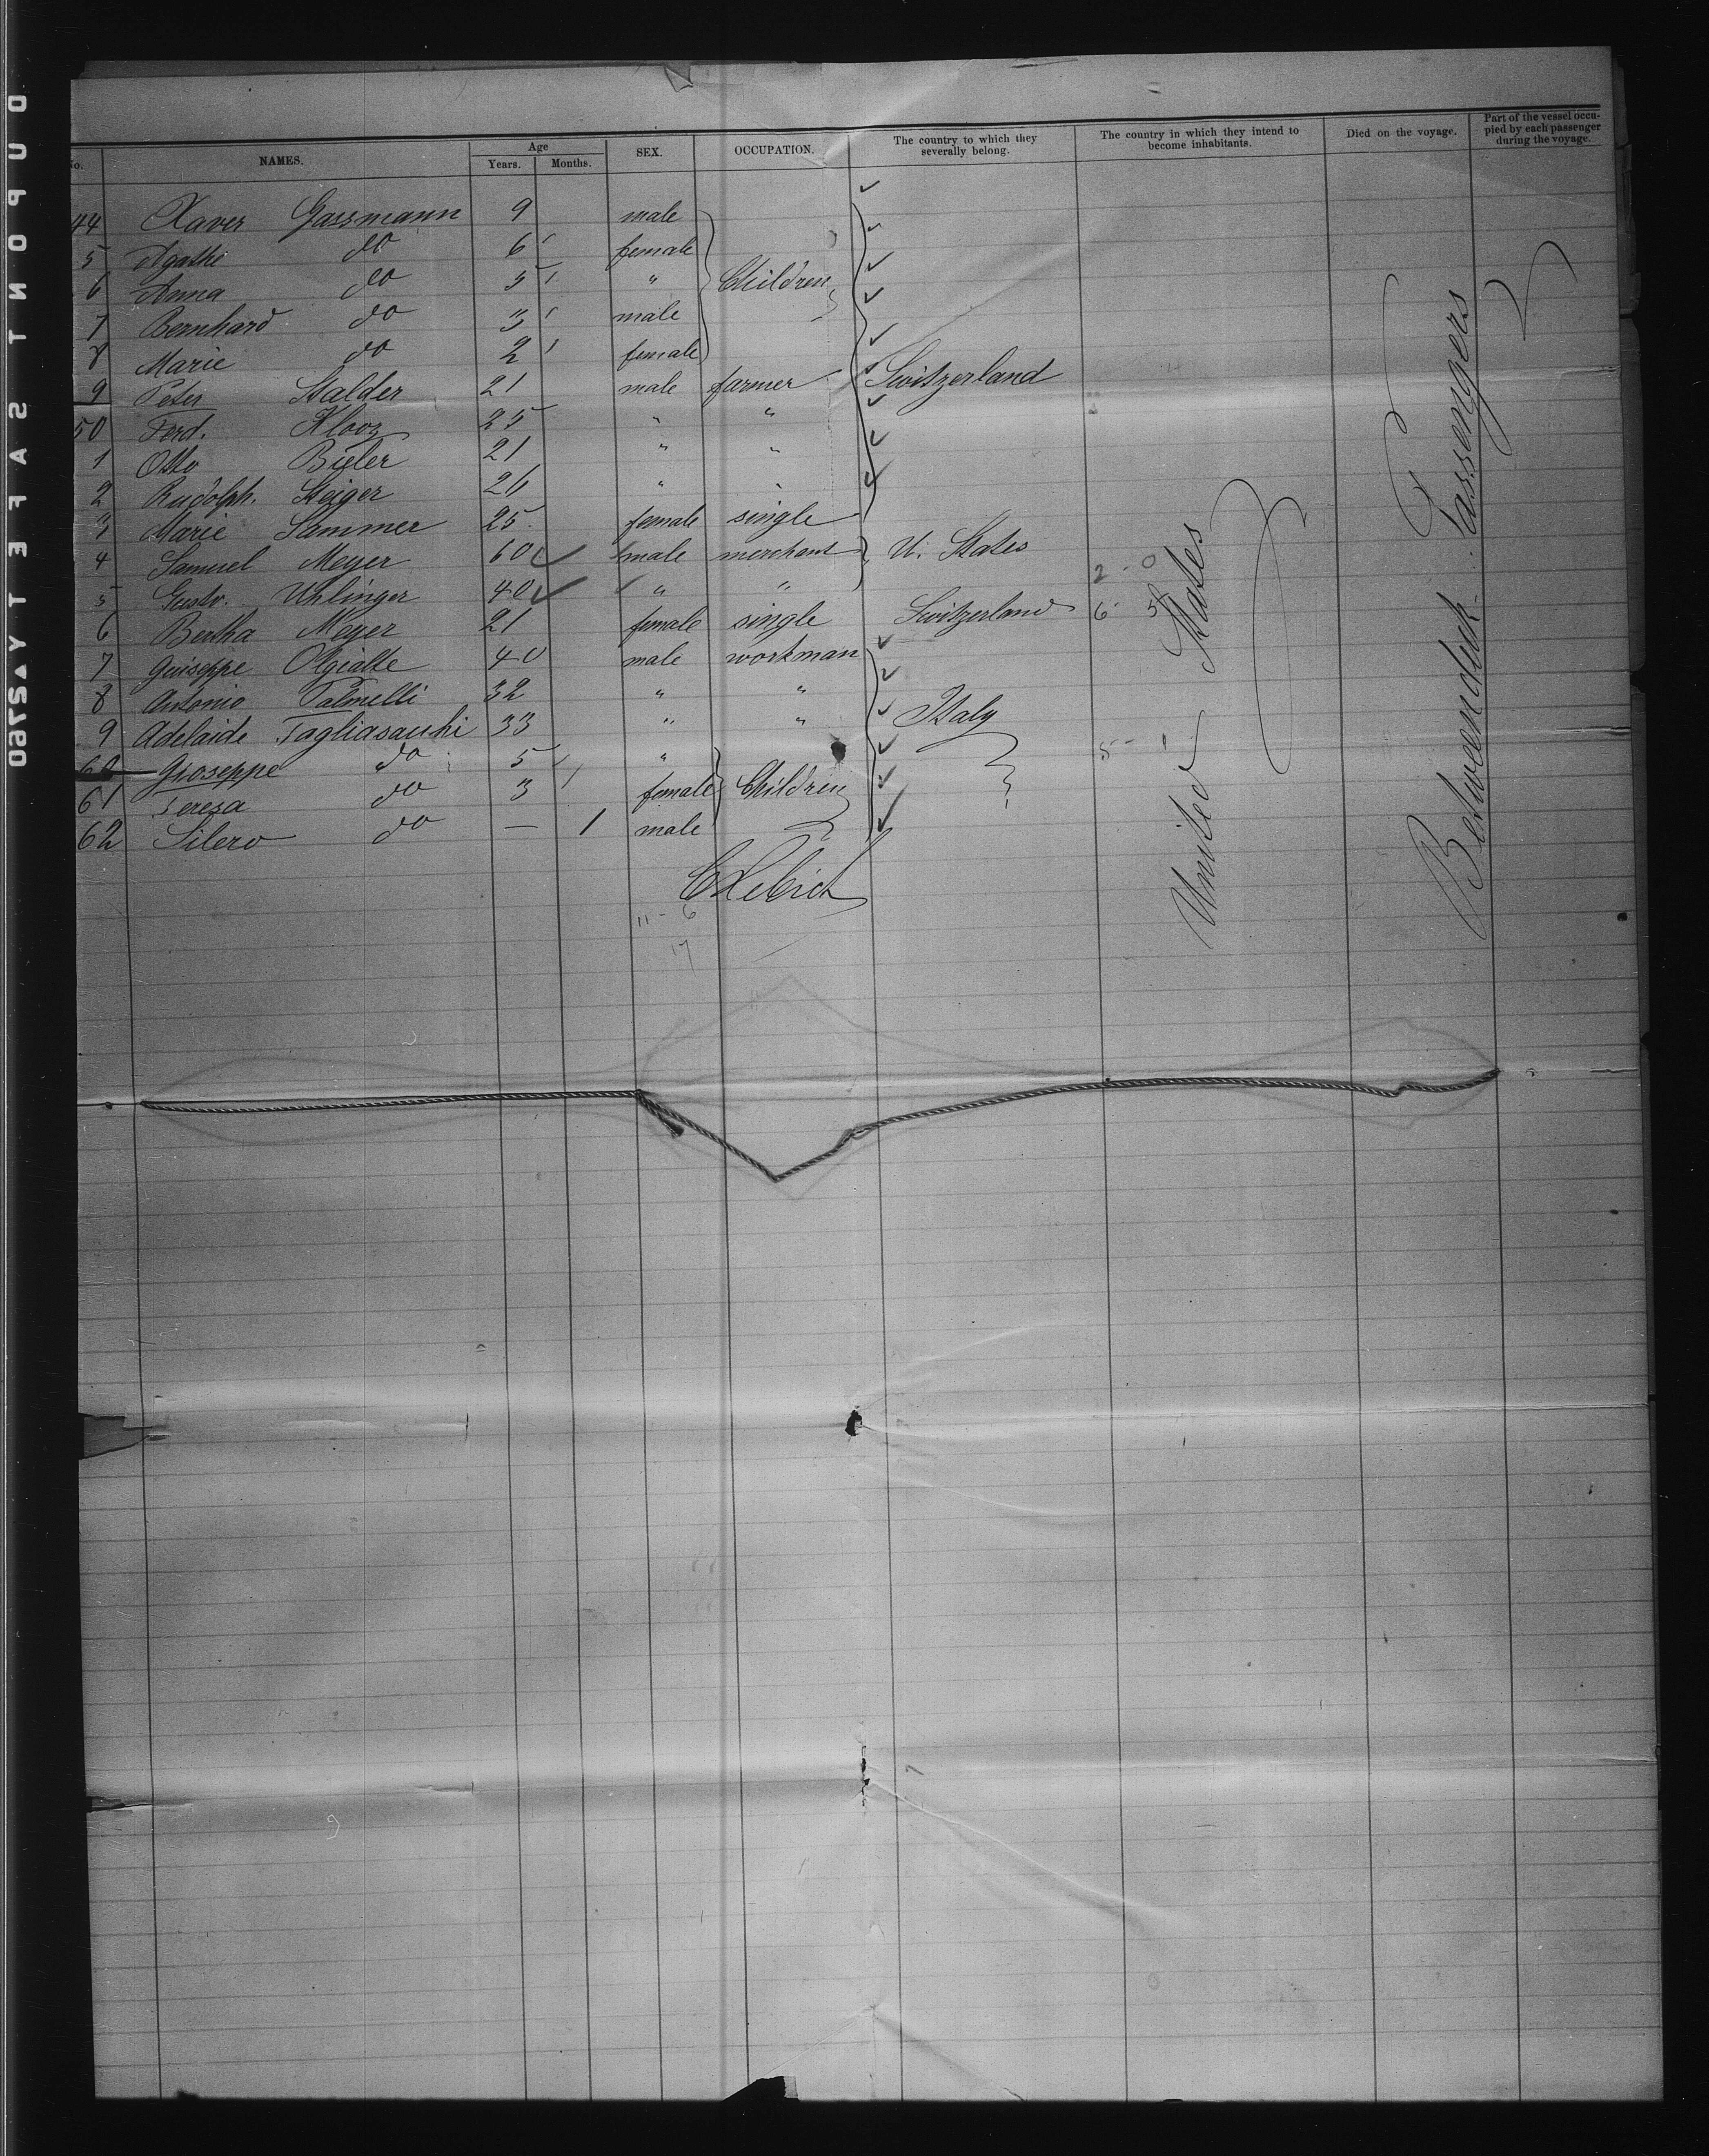 No. NAMES. Age Years. Months. SEX. OCCUPATION. The country to which they severally belong. The country in which they intend to become inhabitants. Died on the voyage. Part of the vessel occupied by each passenger during the voyage.
44 Xaver Gassmann 9 male
5 Agathe do 6 female
6 Anna do 5 " Children
7 Bernhard do 3 male
8 Marie do 2 female
9 Peter Stalder 21 male farmer Switzerland
50 Ferd. Klooz 25 " "
1 Otto Bieler 21 " "
2 Rudolph. Steiger 26 " "
3 Marie Sammer 25 female single
4 Samuel Meyer 60 male merchant U. States
5 Gustv. Uhlinger 40 " "
6 Bertha Meyer 21 female single Switzerland
7 Guiseppe Olgiatte 40 male workman
8 Antonio Palmelli 32 " "
9 Adelaide Tagliasauchi 33 " " Italy
60 Gioseppe do 5 "
61 Teresa do 3 female Children
62 Silero do — 1 male
2 - 0
6 - 5
5 - 1
United States
Betweendeck-Passengers
11 - 6
17